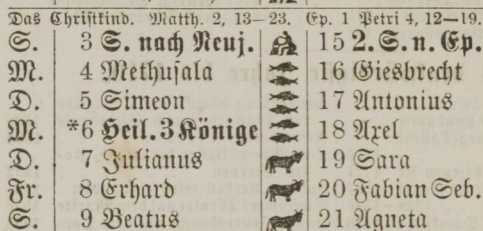 Das Christkind. Matth. 2, 13—23. Ep. 1 Petri 4, 12—19.
S. 3 S. nach Neuj. 15 2. S. n. Ep.
M. 4 Methusala 16 Giesbrecht
D. 5 Simeon 17 Antonius
M. *6 Heil. 3 Könige 18 Axel
D. 7 Julianus 19 Sara
Fr. 8 Erhard 20 Fabian Seb.
S. 9 Beatus 21 Agneta